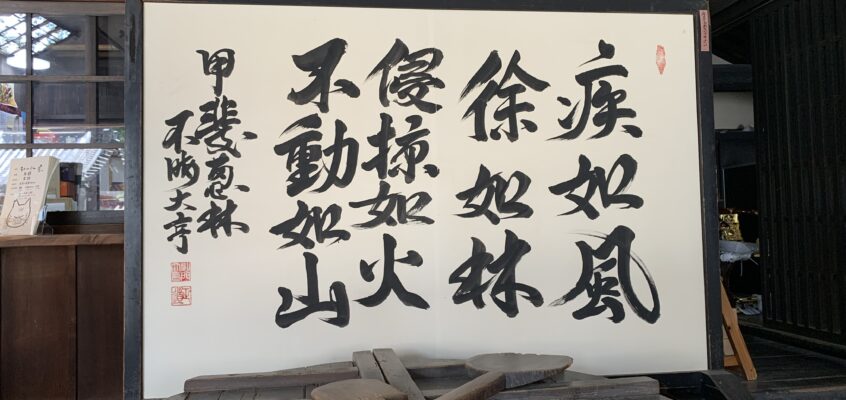 疾如風
徐如林
侵掠如火
不動如山
甲斐恵林
不眠大亨